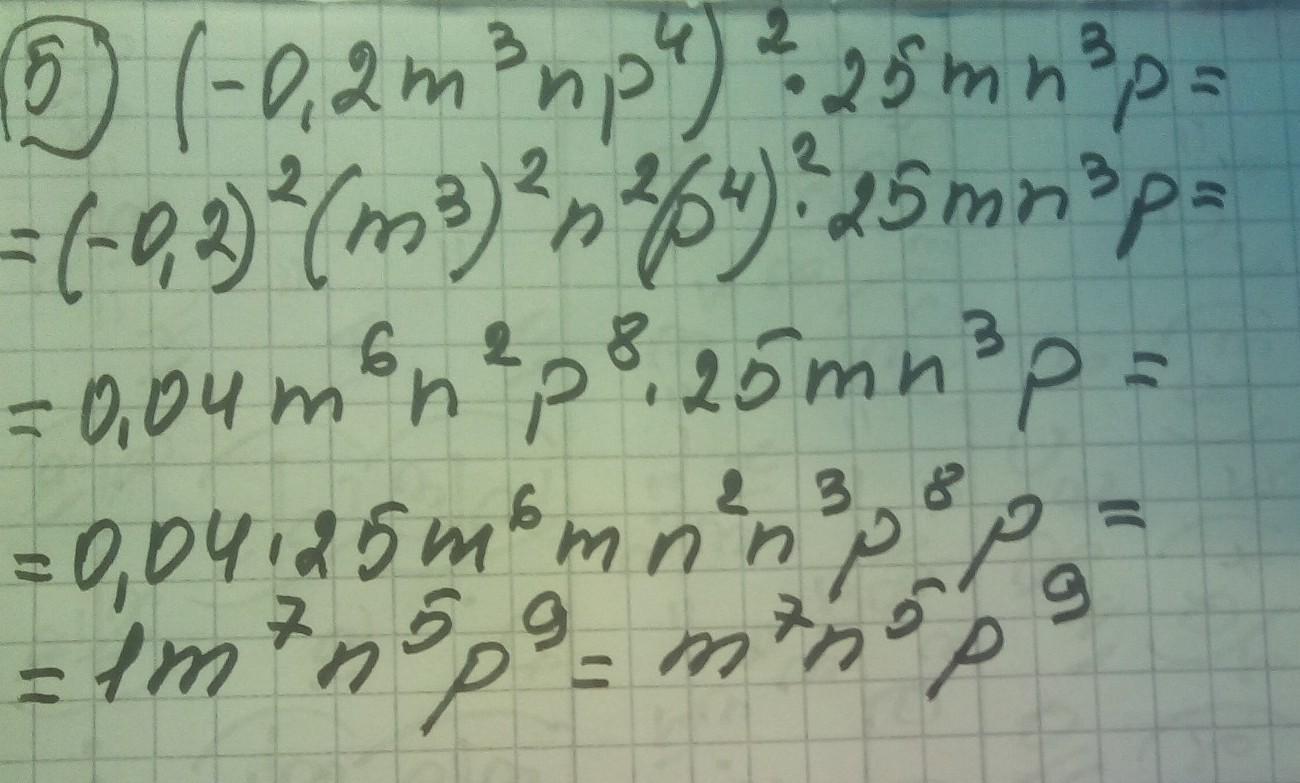 5) (-0,2m³np⁴)²·25mn³p=
=(-0,2)²(m³)²n²(p⁴)²·25mn³p=
=0,04m⁶n²p⁸·25mn³p=
=0,04·25m⁶mn²n³p⁸p=
=1m⁷n⁵p⁹=m⁷n⁵p⁹